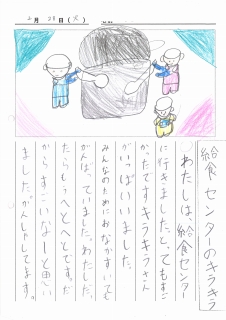 2月28日(火)
給食センターのキラキラ
わたしは、給食センター
に行きました。とてもすご
かったですキラキラさん
がいっぱいいました。
みんなのためにおなかすいても
がんばっていました。わたしだ
たらもうへとへとです。だ
からすごいなーと思い
ました。がんしゃしてます。